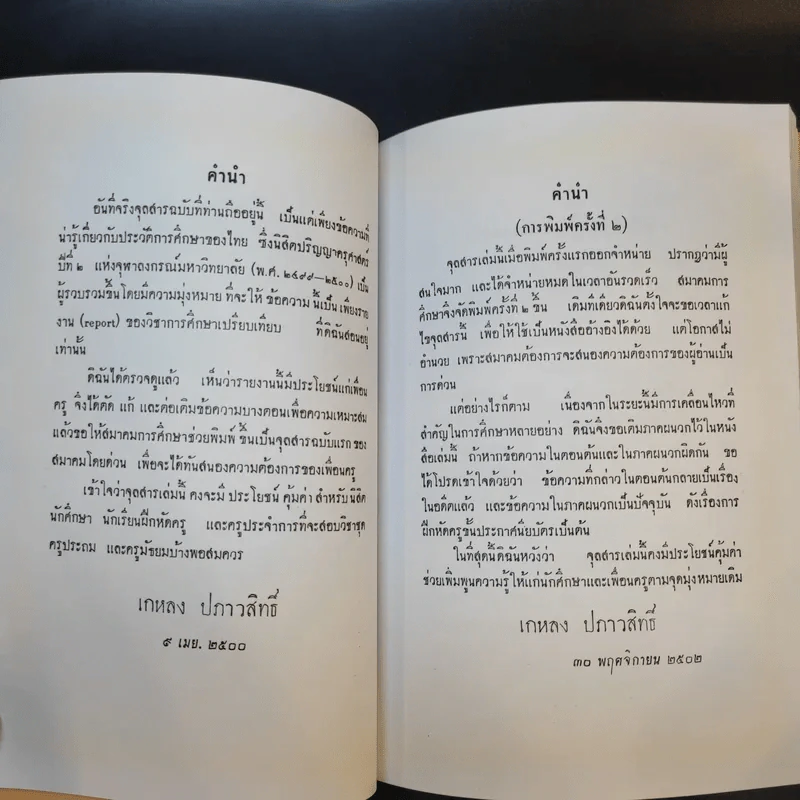 คำนำ
อันที่จริงจุลสารฉบับที่ท่านถืออยู่นี้ เป็นแต่เพียงข้อความที่
น่ารู้เกี่ยวกับประวัติการศึกษาของไทย ซึ่งนิสิตปริญญาครุศาสตร์
ปีที่ ๒ แห่งจุฬาลงกรณ์มหาวิทยาลัย (พ.ศ. ๒๔๙๙—๒๕๐๐) เป็น
ผู้รวบรวมขึ้นโดยมีความมุ่งหมาย ที่จะให้ ข้อความ นี้เป็น เพียงราย
งาน (report) ของวิชาการศึกษาเปรียบเทียบ ที่ดิฉันสอนอยู่
เท่านั้น
ดิฉันได้ตรวจดูแล้ว เห็นว่ารายงานนี้มีประโยชน์แก่เพื่อน
ครู จึงได้ตัด แก้ และต่อเติมข้อความบางตอนเพื่อความเหมาะสม
แล้วขอให้สมาคมการศึกษาช่วยพิมพ์ ขึ้นเป็นจุลสารฉบับแรก ของ
สมาคมโดยด่วน เพื่อจะได้ทันสนองความต้องการของเพื่อนครู
เข้าใจว่าจุลสารเล่มนี้ คงจะมี ประโยชน์ คุ้มค่า สำหรับนิสิต
นักศึกษา นักเรียนฝึกหัดครู และครูประจำการที่จะสอบวิชาชุด
ครูประถม และครูมัธยมบ้างพอสมควร
เกหลง ปภาวสิทธิ์
๙ เมย. ๒๕๐๐
คำนำ
(การพิมพ์ครั้งที่ ๒)
จุลสารเล่มนี้เมื่อพิมพ์ครั้งแรกออกจำหน่าย ปรากฏว่ามีผู้
สนใจมาก และได้จำหน่ายหมดในเวลาอันรวดเร็ว สมาคมการ
ศึกษาจึงจัดพิมพ์ครั้งที่ ๒ ขึ้น เดิมทีเดียวดิฉันตั้งใจจะขอเวลาแก้
ไขจุลสารนี้ เพื่อให้ใช้เป็นหนังสืออ้างอิงได้ด้วย แต่โอกาสไม่
อำนวย เพราะสมาคมต้องการจะสนองความต้องการของผู้อ่านเป็น
การด่วน
แต่อย่างไรก็ตาม เนื่องจากในระยะนี้มีการเคลื่อนไหวที่
สำคัญในการศึกษาหลายอย่าง ดิฉันจึงขอเติมภาคผนวกไว้ในหนัง
สือเล่มนี้ ถ้าหากข้อความในตอนต้นและในภาคผนวกผิดกัน ขอ
ได้โปรดเข้าใจด้วยว่า ข้อความที่กล่าวในตอนต้นกลายเป็นเรื่อง
ในอดีตแล้ว และข้อความในภาคผนวกเป็นปัจจุบัน ดังเรื่องการ
ฝึกหัดครูขั้นประกาศนียบัตรเป็นต้น
ในที่สุดนี้ดิฉันหวังว่า จุลสารเล่มนี้คงมีประโยชน์คุ้มค่า
ช่วยเพิ่มพูนความรู้ให้แก่นักศึกษาและเพื่อนครูตามจุดมุ่งหมายเดิม
เกหลง ปภาวสิทธิ์
๓๐ พฤศจิกายน ๒๕๐๒